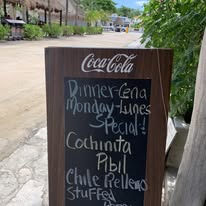 Coca-Cola
Dinner-Cena
Monday-Lunes
Special!
Cochinita
Pibil
Chile Relleno
Stuffed